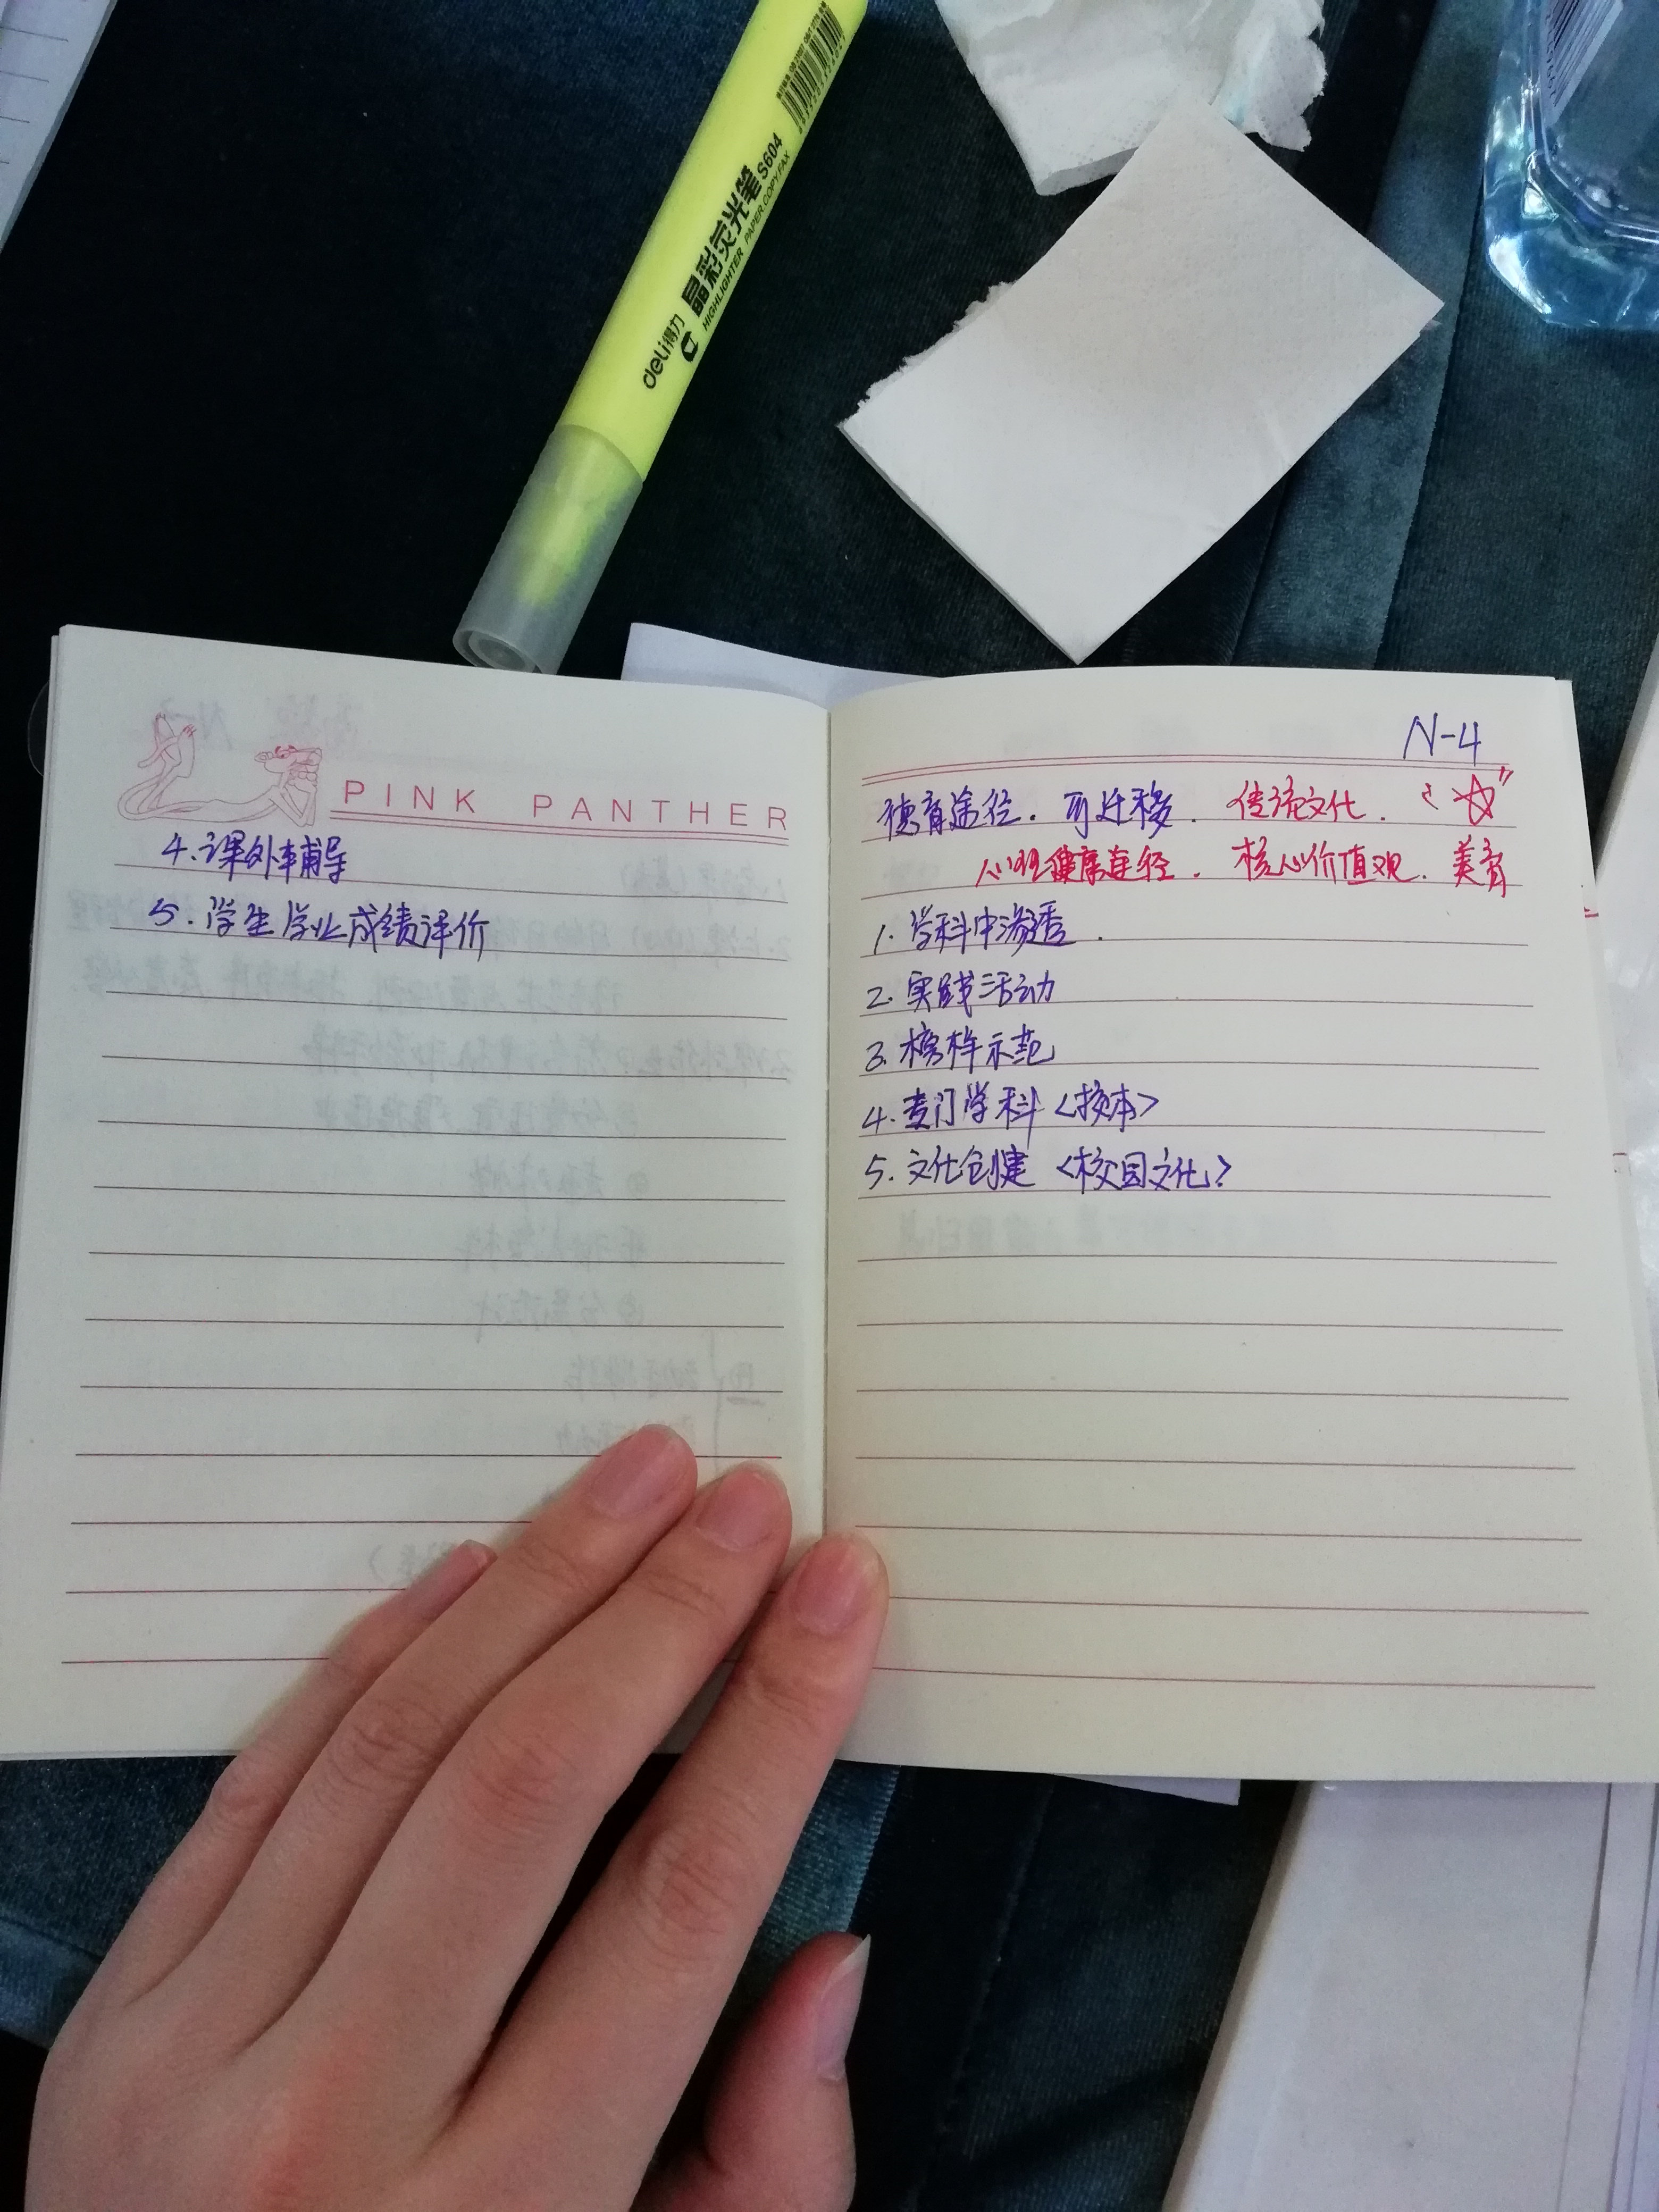 deli得力 晶彩荧光笔 S604
HIGHLIGHTER PAPER.COPY.FAX
PINK PANTHER
4.课外辅导
5.学生学业成绩评价
N-4
德育途径.可迁移.传统文化.
心理健康途径.核心价值观.美育
1.学科中渗透.
2.实践活动
3.榜样示范
4.专门学科<校本>
5.文化创建<校园文化>